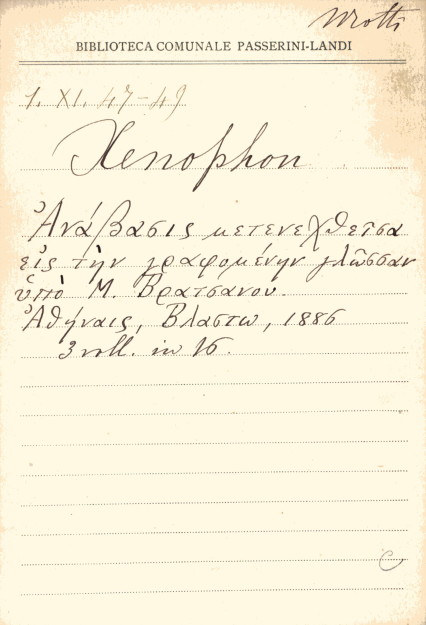 BIBLIOTECA COMUNALE PASSERINI-LANDI
1. XI. 47-49
Xenophon
Ἀνάβασις μετενεχθεῖσα
εἰς τὴν γραφομένην γλῶσσαν
ὑπὸ Μ. Βρατσανου.
Ἀθήναις, Βλαστῳ, 1886
3 voll. in 16.